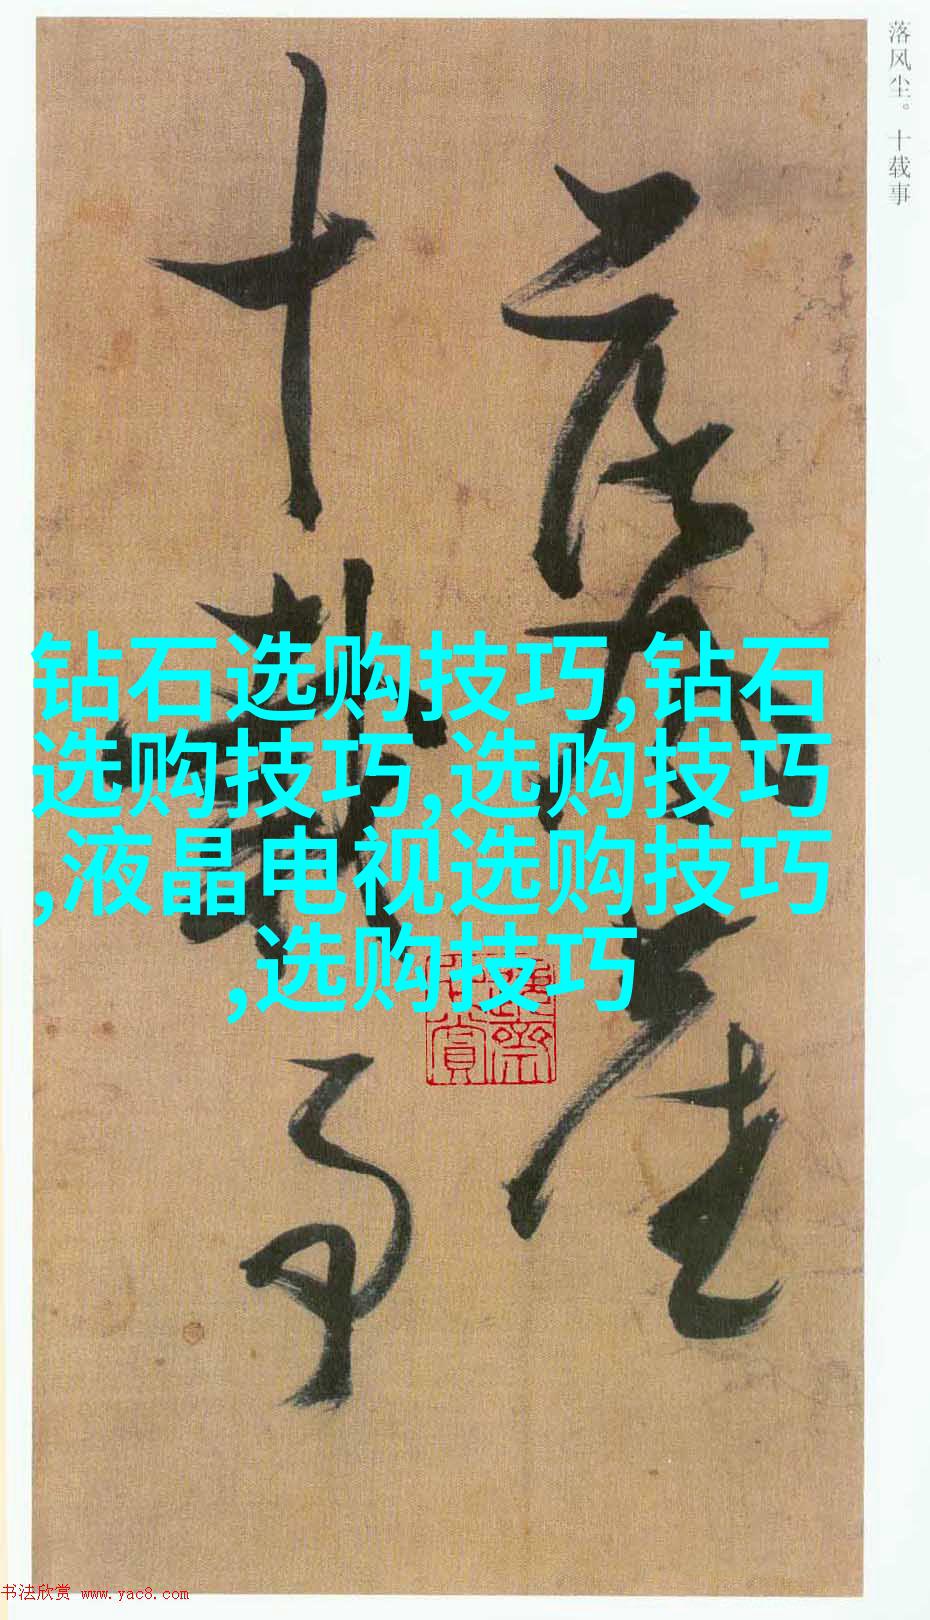 落风尘。十载事
落风尘
十载事
钻石选购技巧,钻石
选购技巧,选购技巧
,液晶电视选购技巧
,选购技巧
书法欣赏 www.yac8.com